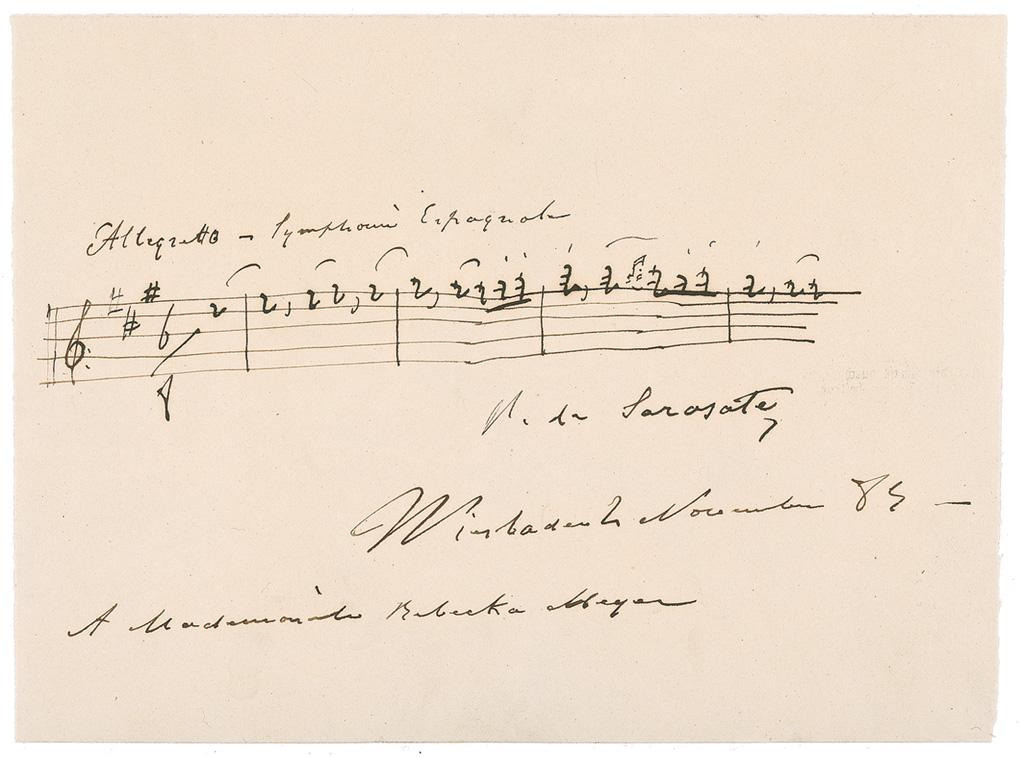 Allegretto – Symphonie Espagnole
6
8
P. de Sarasate
Wiesbaden 2 November 85 –
A Mademoiselle Rebecka Meyer